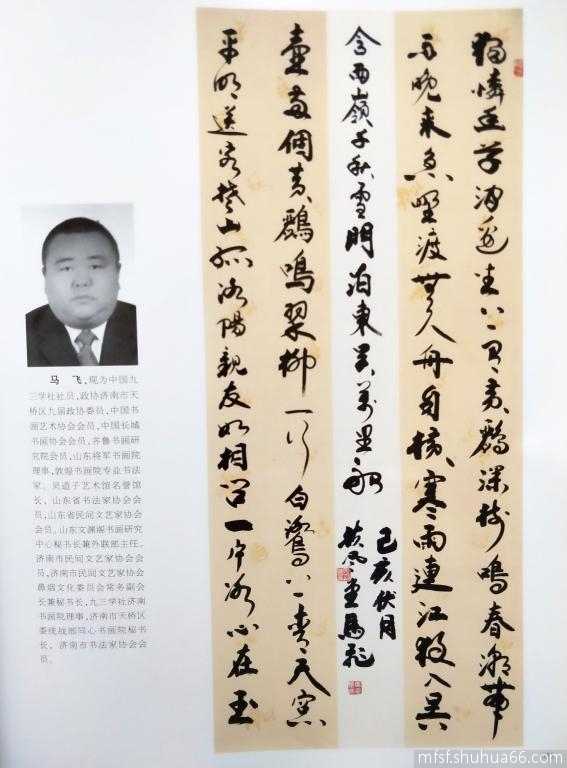 獨憐幽草涧邊生上有黄鸝深樹鳴春潮帶
雨晚来急野渡無人舟自横寒雨連江夜入吴
平明送客楚山孤洛陽親友如相問一片冰心在玉
壶两個黄鸝鳴翠柳一行白鷺上青天窗
含西嶺千秋雪門泊東吴萬里船
己亥伏月
扶风堂馬飛
马 飞,现为中国九
三学社社员,政协济南市天
桥区九届政协委员,中国书
画艺术协会会员,中国长城
书画协会会员,齐鲁书画研
究院会员,山东将军书画院
理事,敦煌书画院专业书法
家。吴道子艺术馆名誉馆
长,山东省书法家协会会
员,山东省民间文艺家协会
会员。山东文渊阁书画研究
中心秘书长兼外联部主任。
济南市民间文艺家协会会
员,济南市民间文艺家协会
鼻烟文化委员会常务副会
长兼秘书长,九三学社济南
书画院理事,济南市天桥区
委统战部同心书画院秘书
长,济南市书法家协会会
员。
mfsf.shuhua66.com